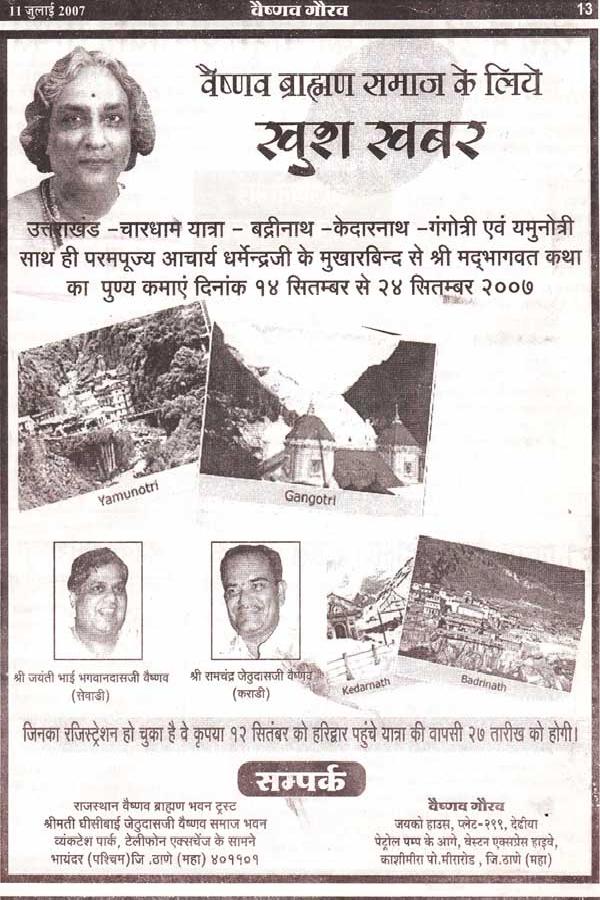 11 जुलाई 2007 वैष्णव गौरव 13
वैष्णव ब्राह्मण समाज के लिये
खुश खबर
उत्तराखंड -चारधाम यात्रा - बद्रीनाथ -केदारनाथ -गंगोत्री एवं यमुनोत्री
साथ ही परमपूज्य आचार्य धर्मेन्द्रजी के मुखारबिन्द से श्री मद्भागवत कथा
का पुण्य कमाएं दिनांक १४ सितम्बर से २४ सितम्बर २००७
Yamunotri
Gangotri
श्री जयंती भाई भगवानदासजी वैष्णव
(सेवाडी)
श्री रामचंद्र जेठुदासजी वैष्णव
(कराडी)
Kedarnath
Badrinath
जिनका रजिस्ट्रेशन हो चुका है वे कृपया १२ सितंबर को हरिद्वार पहुंचे यात्रा की वापसी २७ तारीख को होगी।
सम्पर्क
राजस्थान वैष्णव ब्राह्मण भवन ट्रस्ट
श्रीमती घीसीबाई जेठुदासजी वैष्णव समाज भवन
व्यंकटेश पार्क, टेलीफोन एक्सचेंज के सामने
भायंदर (पश्चिम)जि .ठाणे (महा) ४०११०१
वैष्णव गौरव
जयको हाउस, प्लेट-२९९, देढीया
पेट्रोल पम्प के आगे, वेस्टन एक्सप्रेस हाइवे,
काशीमीरा पो.मीरारोड , जि.ठाणे (महा)